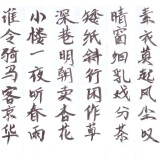 谁令骑马客京华
小楼一夜听春雨
深巷明朝卖杏花
矮纸斜行闲作草
晴窗细乳戏分茶
素衣莫起风尘叹